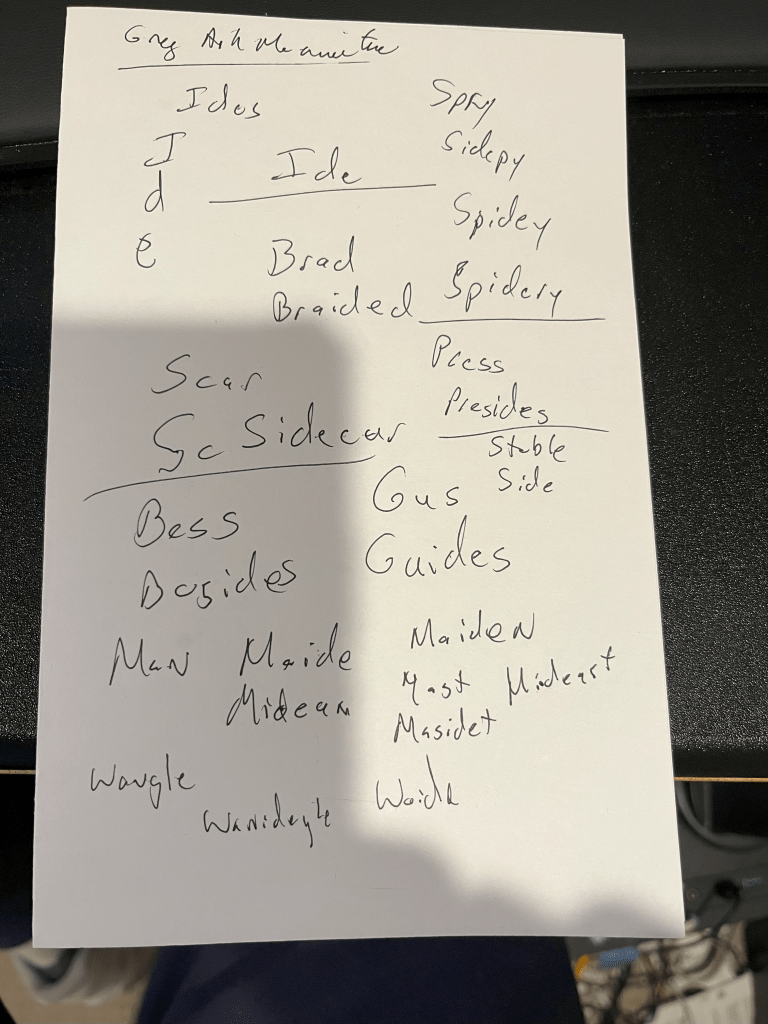 Greg
Idos
Spry
J
d
e
Ide
Sidepy
Spidey
Brad
Braided
Spidery
Scar
Sc Sidecar
Press
Presides
Stable
Side
Bess
Besides
Gus
Guides
Man Maide Maiden
Midean
Mast Mideast
Masidet
Wangle
Wanidegle
Waide